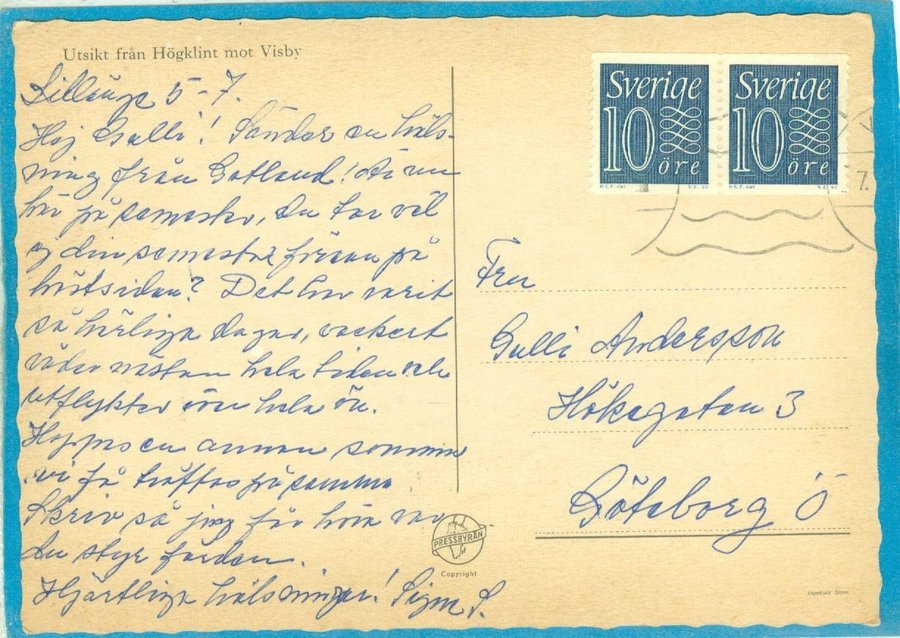 Utsikt från Högklint mot Visby
5-7.
Hej Gulli! Sänder en häls-
ning från Gotland! Är nu
här på semester, du tar väl
din semester på
Det har varit
så härliga dagar, vackert
väder nästan hela tiden och
utflykter över hela ön.
Hoppas en annan sommar
vi få träffas på samma
Skriv så jag får höra var
du styr färden.
Hjärtliga hälsningar! Signe S.
Sverige
10 öre
Sverige
10 öre
7.
Fru
Gulli Andersson
Höksgatan 3
Göteborg Ö
PRESSBYRÅN
Copyright